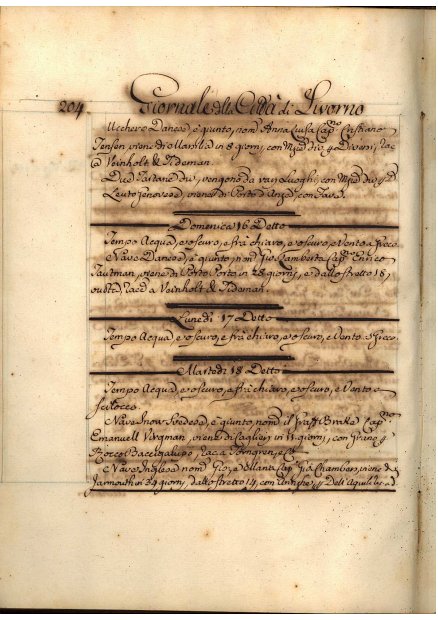 204 Giornale della Città di Livorno
Ucchero Danese, è giunto, nom. Anna Luisa Cap.no Cristiano
Jensen viene di Marsilia in 8 giorni, con Mjid div. p Diversi, Rac.
a Voinholt & Tideman.
Due Tartane div. vengono da van Luoghi con Mjid div. p d
Leuto Genovese, viene di Porto d'Anzo, con
Domenica 16 Detto
Tempo Acqua, e oscuro, e frà chiaro, e oscuro, e Vento a Greco
Nave Danese, è giunto, nom. Jos Lamberto Cap.no Enrico
Pautman, viene di Porto Porto in 28 giorni, e dallo stretto 18,
Racd a Voinholt & Tideman.
Lunedì 17 Detto
Tempo Acqua e oscuro, e frà chiaro, e oscuro, e Vento a Greco.
Martedì 18 Detto
Tempo Acqua, e oscuro, e frà chiaro, e oscuro, e Vento a
Scilocco.
Nave Snow Svedese, è giunto, nom. il Cap.no
Emanuell Virgman, viene di Caglieri in 11 giorni, con Grano p
Racc. a
Nave Inglese nom. Gio, e Maria Cap.no Gio Chambers, viene di
Jarmouth in 34 giorni, dallo stretto 14, con p Dell'Aquila & d